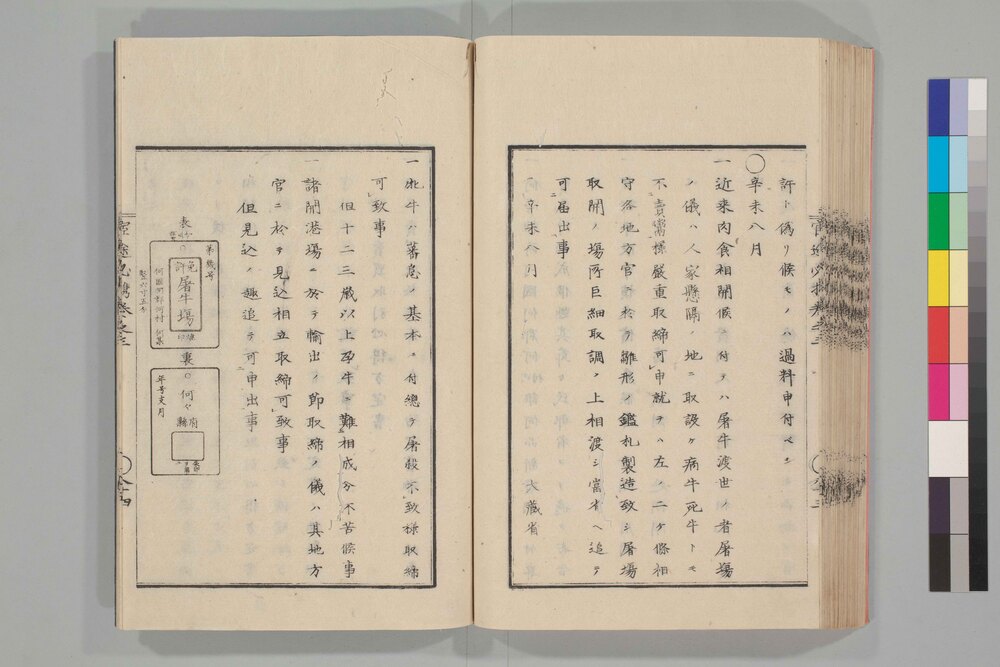 許ト偽リ候モノハ過料申付ベシ
○辛未八月
一近来肉食相開候ニ付テハ屠牛渡世ノ者屠場
ノ儀ハ人家懸隔ノ地ニ取設ケ病牛死牛トモ
不賣鬻様嚴重取締可申就テハ左ノ二ケ條相
守各地方官ニ於テ雛形ノ鑑札製造致シ屠場
取開ノ場所巨細取調ノ上相渡シ當省ヘ追テ
可届出事
辛未八月 大藏省
一牝牛ハ蕃息ノ基本ニ付總テ屠殺不致様取締
可致事
但十二三歳以上孕牛ニ難相成分ハ不苦候事
一諸開港場ニ於テ輸出ノ節取締ノ儀ハ其地方
官ニ於テ見込相立取締可致事
但見込ノ趣追テ可申出事
表
第幾号
免許
屠牛場
何國何郡何村 何某
裏
何々
府縣
年号支月